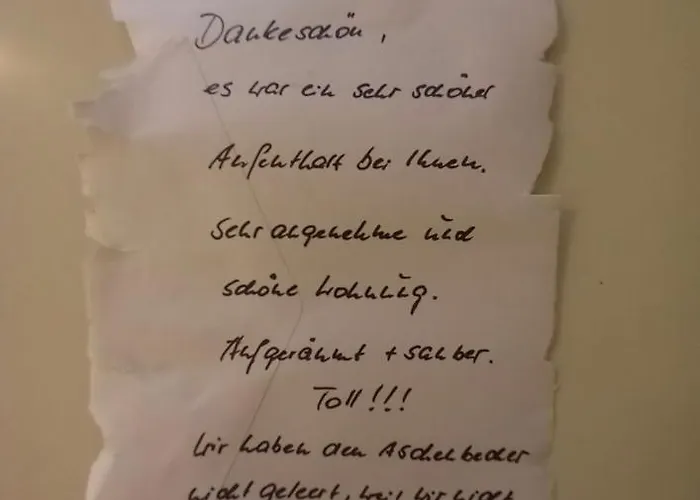 Dankeschön,
es war ein sehr schöner
Aufenthalt bei Ihnen.
Sehr angenehme und
schöne Wohnung.
Aufgeräumt + sauber.
Toll!!!
Wir haben den Aschenbecher
nicht geleert, weil wir nicht